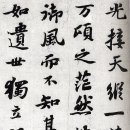 光接天縱一
万頃之茫然
御風而不知其
如遺世獨立